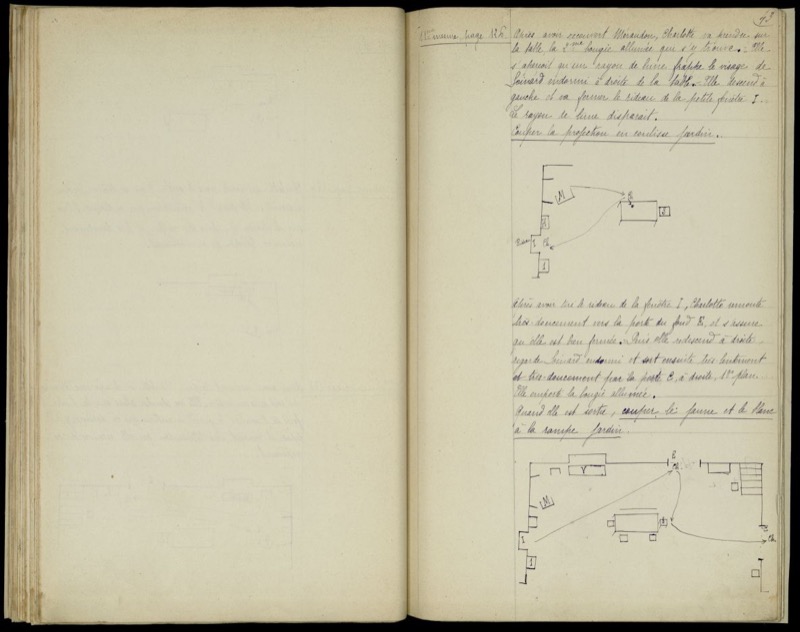 73
mesure, page 126
Après avoir recouvert Morandon, Charlotte va prendre sur
la table la 2ème bougie allumée qui s'y trouve. - Elle
s'aperçoit qu'un rayon de lune frappe le visage de
Boinard endormi à droite de la table. - Elle descend à
gauche et va fermer le rideau de la petite fenêtre I.
Le rayon de lune disparait.
Couper la projection en coulisse Jardin.
M
I Ch.
Après avoir tiré le rideau de la fenêtre I, Charlotte remonte
très doucement vers la porte du fond B, et s'assure
qu'elle est bien fermée. - Puis elle redescend à droite,
regarde endormi et sort ensuite très lentement
et très doucement par la porte C, à droite, 1er plan.
Elle emporte la bougie allumée.
Quand elle est sortie, couper le jaune et le blanc
à la rampe Jardin.
B
Y
M
I
Ch.